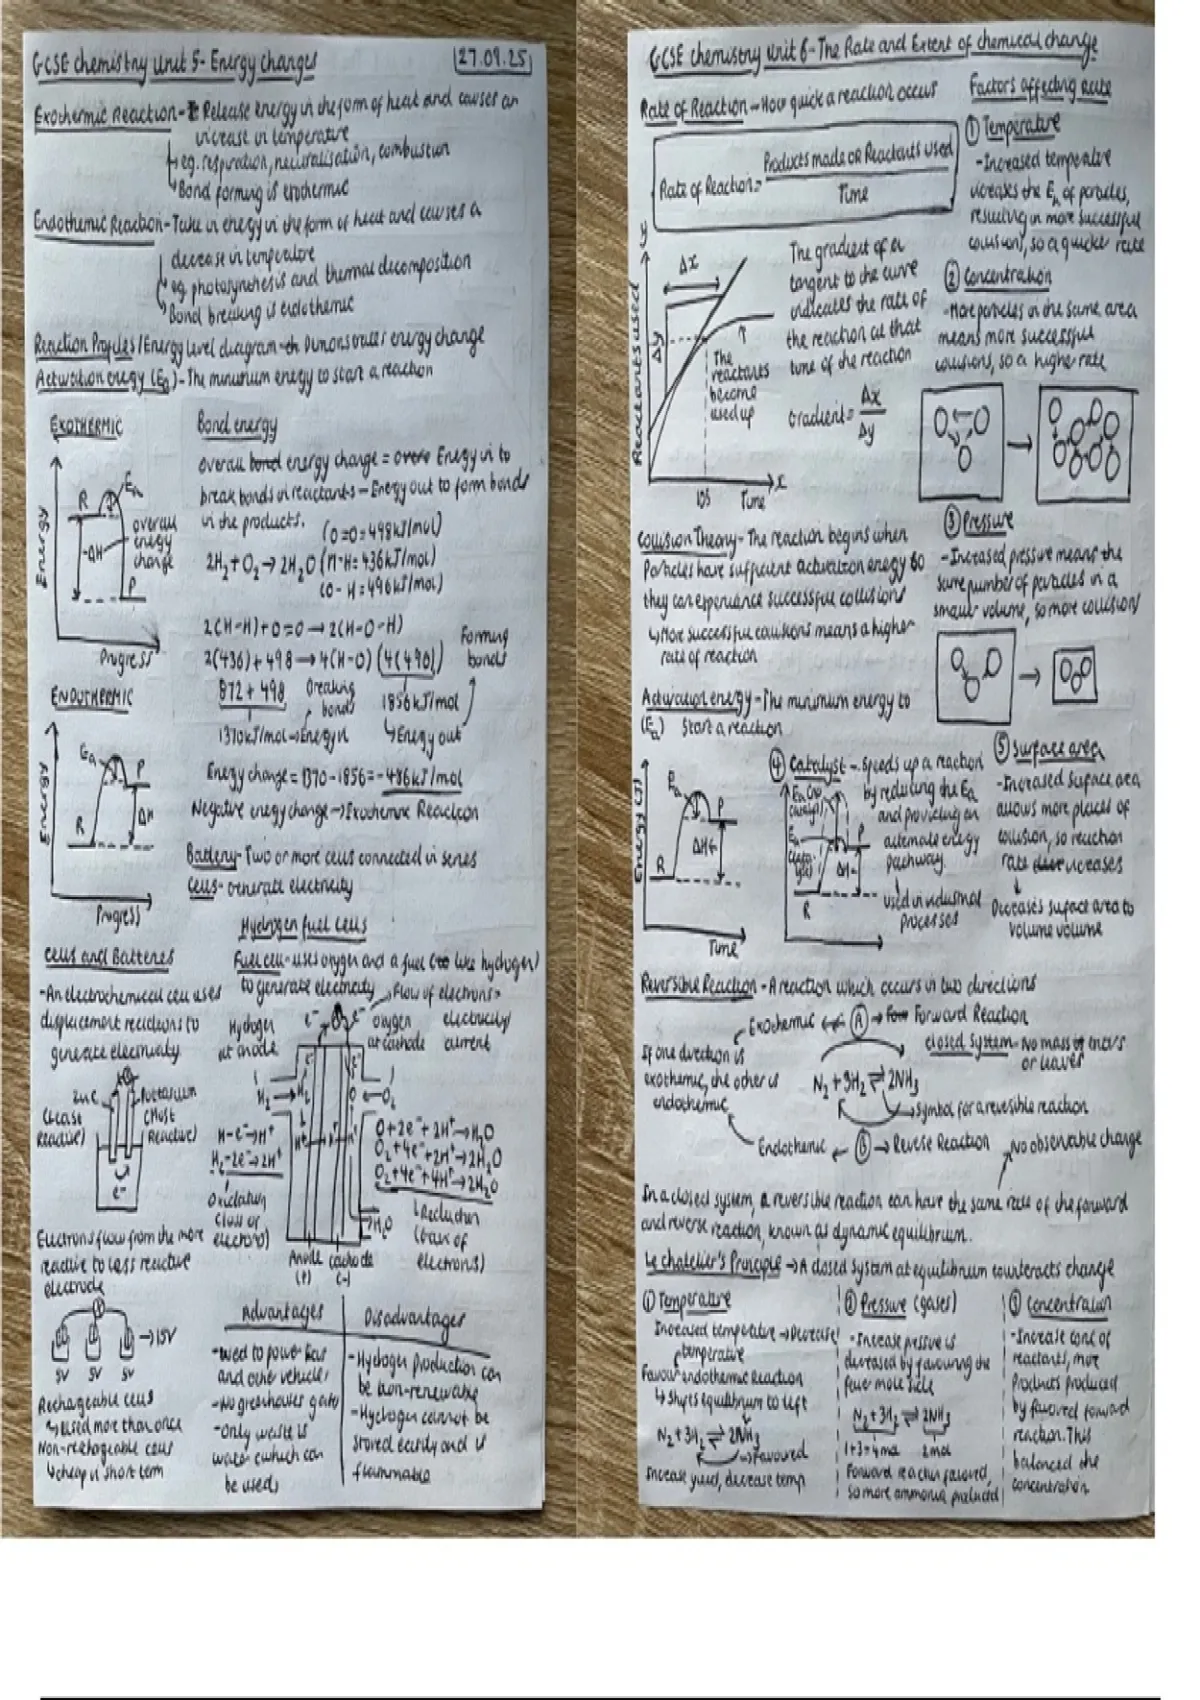 GCSE chemistry Unit 5- Energy changes
27.09.25
Exothermic Reaction- Release energy in the form of heat and causes an
increase in temperature
eg. respiration, neutralisation, combustion
Bond forming is exothermic
Endothermic Reaction- Take in energy in the form of heat and causes a
decrease in temperature
eg. photosynthesis and thermal decomposition
Bond breaking is endothermic
Reaction Profiles/Energy level diagram - Demonstrates energy change
Activation energy (Ea)- The minimum energy to start a reaction
EXOTHERMIC
Energy
R
Ea
-ΔH
overall
energy
change
P
Progress
Bond energy
overall energy change = Energy in to
break bonds in reactants - Energy out to form bonds
in the products.
(O=O=498kJ/mol)
2H₂+O₂→2H₂O (H-H=436kJ/mol)
(O-H=496kJ/mol)
2(H-H)+O=O→2(H-O-H)
2(436)+498→4(H-O)
Forming
bonds
872+498
Breaking
bonds
1370kJ/mol→Energy in
1856kJ/mol
↳Energy out
Energy change=1370-1856=-486kJ/mol
Negative energy change→Exothermic Reaction
ENDOTHERMIC
Energy
Ea
P
R
ΔH
Progress
Battery- Two or more cells connected in series
Cells- Generate electricity
Cells and Batteries
-An electrochemical cell uses
displacement reactions to
generate electricity
zinc
(Least
Reactive)
(Most
Reactive)
e⁻
Electrons flow from the more
reactive to less reactive
electrode
→15V
5V 5V 5V
Rechargeable cells
↳Used more than once
Non-rechargeable cells
↳cheap in short term
Hydrogen fuel cells
Fuel cell- uses oxygen and a fuel (like hydrogen)
to generate electricity
Flow of electrons=
electricity/
current
Hydrogen
at anode
oxygen
at cathode
H₂
O₂
H-e⁻→H⁺
H₂-2e⁻→2H⁺
Oxidation
(loss of
electrons)
O+2e⁻+2H⁺→H₂O
O₂+4e⁻+2H⁺→2H₂O
O₂+4e⁻+4H⁺→2H₂O
Reduction
(Gain of
electrons)
H₂O
Anode
(+)
cathode
(-)
Advantages
-used to power cars
and other vehicles
-No greenhouses gases
-Only waste is
water (which can
be used)
Disadvantages
-Hydrogen production can
be non-renewable
-Hydrogen cannot be
stored easily and is
flammable
GCSE chemistry Unit 6- The Rate and Extent of chemical change
Rate of Reaction→How quick a reaction occurs
Rate of Reaction=
Products made OR Reactants used
Time
Reactants used
y
Δx
Δy
The
reactants
become
used up
10s
Time
x
The gradient of a
tangent to the curve
indicates the rate of
the reaction at that
time of the reaction
Gradient= Δx
Δy
Collision Theory- The reaction begins when
Particles have sufficient activation energy so
they can experience successful collisions
↳More successful collisions means a higher
rate of reaction
Activation energy-The minimum energy to
(Ea) Start a reaction
Energy (J)
Ea
P
R
ΔH
Time
Factors affecting Rate
① Temperature
-Increased temperature
increases the Ek of particles,
resulting in more successful
collisions, so a quicker rate
② Concentration
-More particles in the same area
means more successful
collisions, so a higher rate
③ Pressure
-Increased pressure means the
same number of particles in a
smaller volume, so more collisions
④ Catalyst - Speeds up a reaction
by reducing the Ea
and providing an
alternate energy
pathway.
used in industrial
processes
P
R
ΔH
⑤ Surface area
-Increased surface area
allows more places of
collision, so reaction
rate increases
Decreases surface area to
volume volume
Reversible Reaction - A reaction which occurs in two directions
Exothermic ← Ⓐ → Forward Reaction
If one direction is
exothermic, the other is
endothermic
closed system- No mass enters
or leaves
N₂+3H₂⇌2NH₃
Symbol for a reversible reaction
Endothermic ← Ⓑ → Reverse Reaction
No observable change
In a closed system, a reversible reaction can have the same rate of the forward
and reverse reaction, known as dynamic equilibrium.
Le chatelier's Principle → A closed system at equilibrium counteracts change
① Temperature
Increased temperature→Decrease
temperature
Favour endothermic Reaction
↳Shifts equilibrium to left
N₂+3H₂⇌2NH₃
Favoured
Increase yield, decrease temp
② Pressure (gases)
-Increase pressure is
decreased by favouring the
fewer mole side
N₂+3H₂⇌2NH₃
1+3=4mol 2mol
Forward reaction favored,
so more ammonia produced
③ Concentration
-Increase conc of
reactants, more
Products produced
by favored forward
reaction. This
balanced the
concentration.